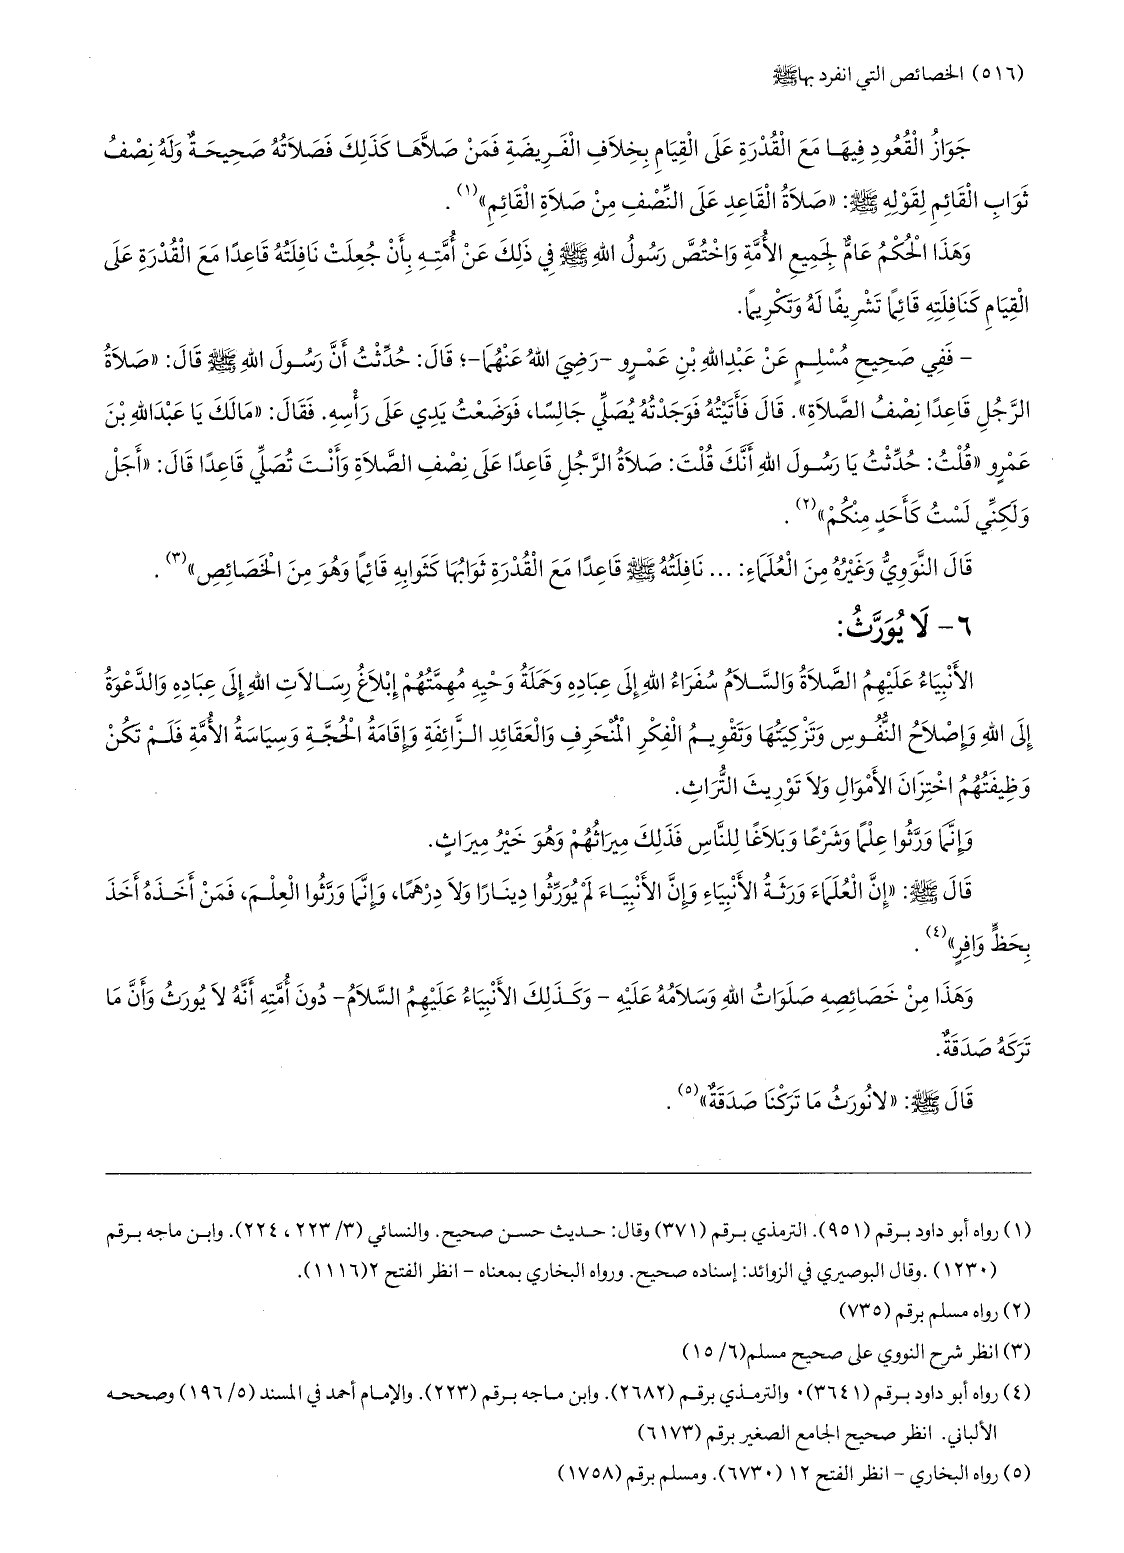 (٥١٦) الخصائص التي انفرد بها ﷺ
جَوَازُ الْقُعُودِ فِيهَا مَعَ الْقُدْرَةِ عَلَى الْقِيَامِ بِخِلاَفِ الْفَرِيضَةِ فَمَنْ صَلاَّهَا كَذَلِكَ فَصَلاَتُهُ صَحِيحَةٌ وَلَهُ نِصْفُ
ثَوَابِ الْقَائِمِ لِقَوْلِهِ ﷺ: «صَلاَةُ الْقَاعِدِ عَلَى النِّصْفِ مِنْ صَلاَةِ الْقَائِمِ»(١).
وَهَذَا الْحُكْمُ عَامٌّ لِجَمِيعِ الأُمَّةِ وَاخْتُصَّ رَسُولُ اللهِ ﷺ فِي ذَلِكَ عَنْ أُمَّتِهِ بِأَنْ جُعِلَتْ نَافِلَتُهُ قَاعِدًا مَعَ الْقُدْرَةِ عَلَى
الْقِيَامِ كَنَافِلَتِهِ قَائِمًا تَشْرِيفًا لَهُ وَتَكْرِيمًا.
– فَفِي صَحِيحِ مُسْلِمٍ عَنْ عَبْدِاللهِ بْنِ عَمْرٍو –رَضِيَ اللهُ عَنْهُمَا–؛ قَالَ: حُدِّثْتُ أَنَّ رَسُولَ اللهِ ﷺ قَالَ: «صَلاَةُ
الرَّجُلِ قَاعِدًا نِصْفُ الصَّلاَةِ». قَالَ فَأَتَيْتُهُ فَوَجَدْتُهُ يُصَلِّي جَالِسًا، فَوَضَعْتُ يَدِي عَلَى رَأْسِهِ. فَقَالَ: «مَالَكَ يَا عَبْدَاللهِ بْنَ
عَمْرٍو «قُلْتُ: حُدِّثْتُ يَا رَسُولَ اللهِ أَنَّكَ قُلْتَ: صَلاَةُ الرَّجُلِ قَاعِدًا عَلَى نِصْفِ الصَّلاَةِ وَأَنْتَ تُصَلِّي قَاعِدًا قَالَ: «أَجَلْ
وَلَكِنِّي لَسْتُ كَأَحَدٍ مِنْكُمْ»(٢).
قَالَ النَّوَوِيُّ وَغَيْرُهُ مِنَ الْعُلَمَاءِ: ... نَافِلَتُهُ ﷺ قَاعِدًا مَعَ الْقُدْرَةِ ثَوَابُهَا كَثَوابِهِ قَائِمًا وَهُوَ مِنَ الْخَصَائِصِ»(٣).
٦– لَا يُوَرَّثُ:
الأَنْبِيَاءُ عَلَيْهِمُ الصَّلاَةُ وَالسَّلاَمُ سُفَرَاءُ اللهِ إِلَى عِبَادِهِ وَحَمَلَةُ وَحْيِهِ مُهِمَّتُهُمْ إِبْلاَغُ رِسَالاَتِ اللهِ إِلَى عِبَادِهِ وَالدَّعْوَةُ
إِلَى اللهِ وَإِصْلاَحُ النُّفُوسِ وَتَزْكِيَتُهَا وَتَقْوِيمُ الْفِكْرِ الْمُنْحَرِفِ وَالْعَقَائِدِ الزَّائِفَةِ وَإِقَامَةُ الْحُجَّةِ وَسِيَاسَةُ الأُمَّةِ فَلَمْ تَكُنْ
وَظِيفَتُهُمُ اخْتِزَانَ الأَمْوَالِ وَلاَ تَوْرِيثَ التُّرَاثِ.
وَإِنَّمَا وَرَّثُوا عِلْمًا وَشَرْعًا وَبَلاَغًا لِلنَّاسِ فَذَلِكَ مِيرَاثُهُمْ وَهُوَ خَيْرُ مِيرَاثٍ.
قَالَ ﷺ: «إِنَّ الْعُلَمَاءَ وَرَثَةُ الأَنْبِيَاءِ وَإِنَّ الأَنْبِيَاءَ لَمْ يُوَرِّثُوا دِينَارًا وَلاَ دِرْهَمًا، وَإِنَّمَا وَرَّثُوا الْعِلْمَ، فَمَنْ أَخَذَهُ أَخَذَ
بِحَظٍّ وَافِرٍ»(٤).
وَهَذَا مِنْ خَصَائِصِهِ صَلَوَاتُ اللهِ وَسَلاَمُهُ عَلَيْهِ – وَكَذَلِكَ الأَنْبِيَاءُ عَلَيْهِمُ السَّلاَمُ– دُونَ أُمَّتِهِ أَنَّهُ لاَ يُورَثُ وَأَنَّ مَا
تَرَكَهُ صَدَقَةٌ.
قَالَ ﷺ: «لانُورَثُ مَا تَرَكْنَا صَدَقَةٌ»(٥).
(١) رواه أبو داود برقم (٩٥١). الترمذي برقم (٣٧١) وقال: حديث حسن صحيح. والنسائي (٣/ ٢٢٣ ، ٢٢٤). وابن ماجه برقم
(١٢٣٠) .وقال البوصيري في الزوائد: إسناده صحيح. ورواه البخاري بمعناه – انظر الفتح ٢(١١١٦).
(٢) رواه مسلم برقم (٧٣٥)
(٣) انظر شرح النووي على صحيح مسلم(٦/ ١٥)
(٤) رواه أبو داود برقم (٣٦٤١)٠ والترمذي برقم (٢٦٨٢). وابن ماجه برقم (٢٢٣). والإمام أحمد في المسند (٥/ ١٩٦) وصححه
الألباني. انظر صحيح الجامع الصغير برقم (٦١٧٣)
(٥) رواه البخاري – انظر الفتح ١٢ (٦٧٣٠). ومسلم برقم (١٧٥٨)